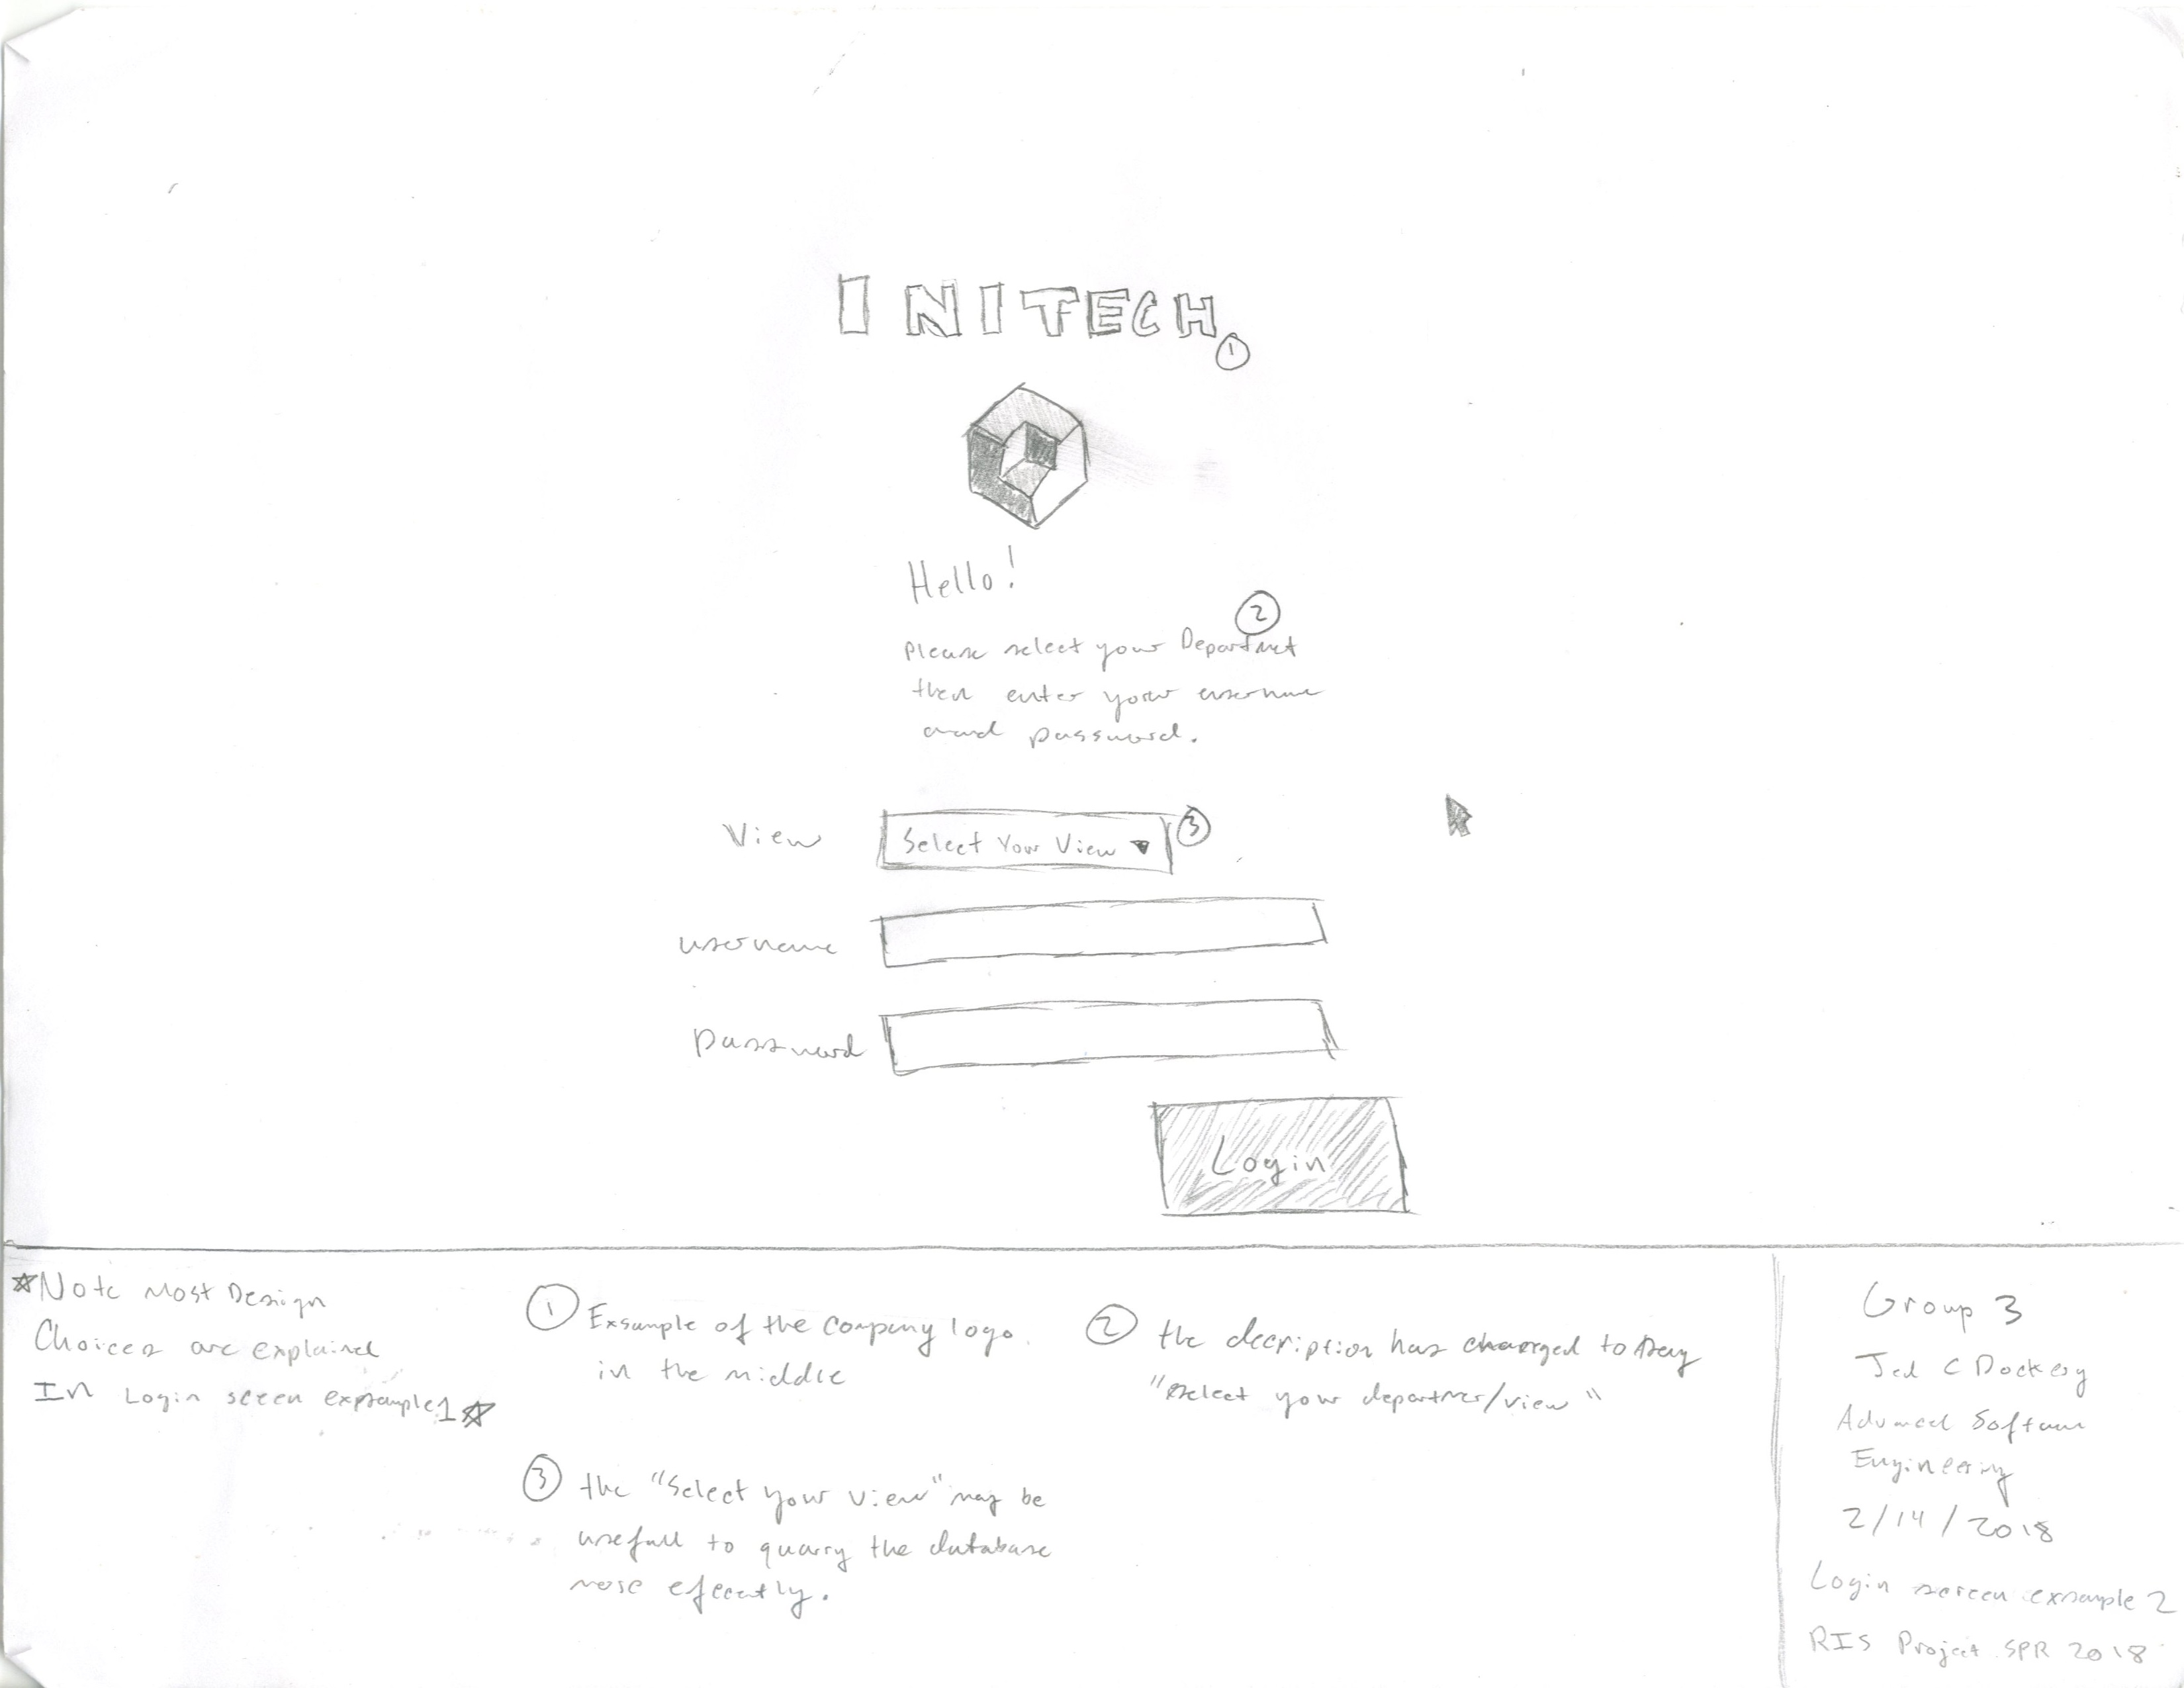 INITECH
1
Hello!
2
please select your Departmet
then enter your username
and password.
View
Select Your View
3
username
password
Login
Note Most Design
Choices are explained
In Login screen exsample 1
1 Exsample of the company logo.
in the middle
2 the decription has changed to say
"select your departmer/view"
3 the "Select your view" may be
usefull to quarry the database
more efecently.
Group 3
Jed C Dockery
Advanced Software
Engineering
2/14/2018
Login screen exsample 2
RIS Project SPR 2018